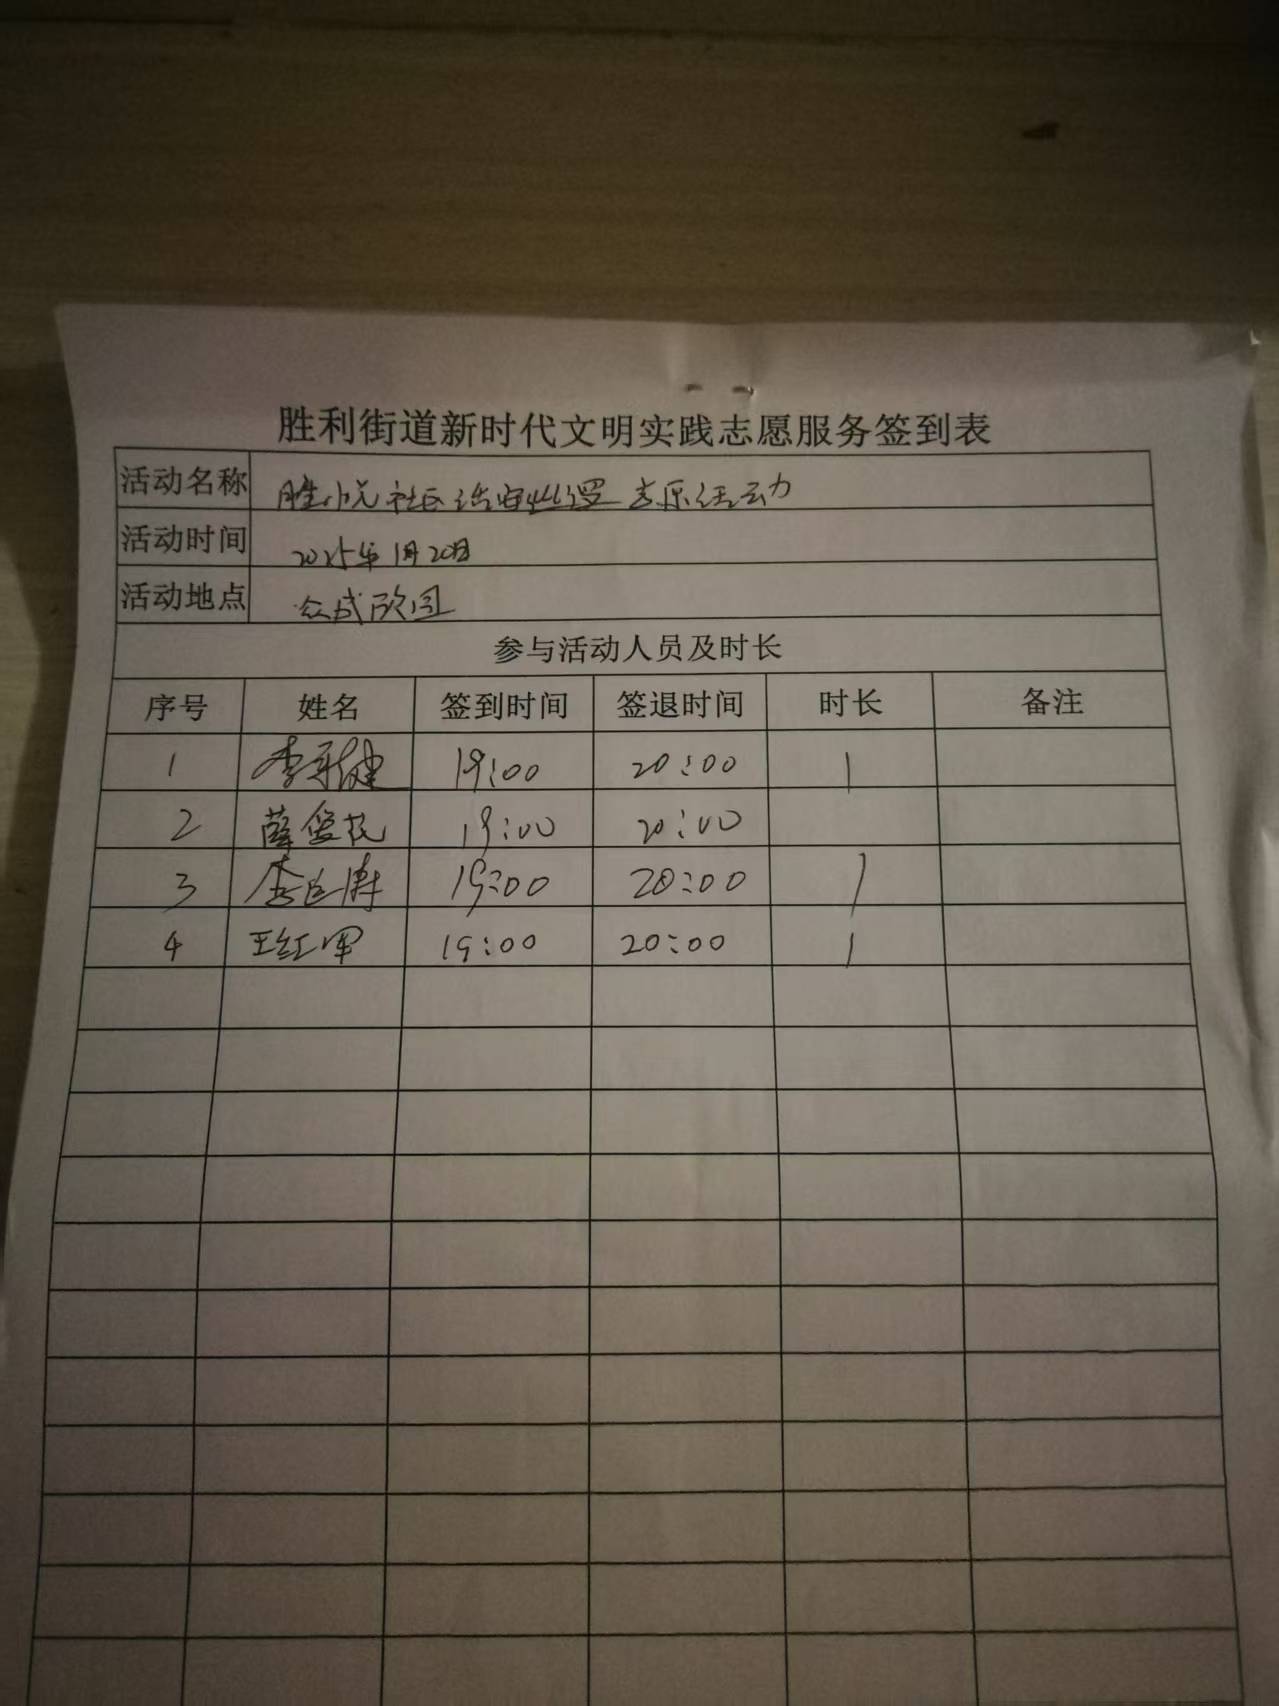 胜利街道新时代文明实践志愿服务签到表
活动名称 社区治安巡逻志愿活动
活动时间 2025年1月20日
活动地点 众成欣园
参与活动人员及时长
序号 姓名 签到时间 签退时间 时长 备注
1 李 健 19:00 20:00 1
2 薛爱花 19:00 20:00
3 李 涛 19:00 20:00 1
4 王红军 19:00 20:00 1